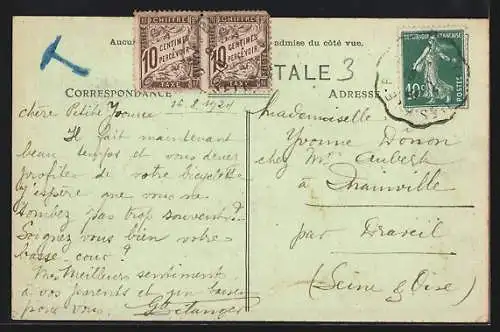 T
CHIFFRE CHIFFRE
10 10
CENTIMES CENTIMES
À PERCEVOIR À PERCEVOIR
TAXE TAXE
REPUBLIQUE FRANÇAISE
10c
POSTES
Aucun admise du côté vue.
TALE 3
CORRESPONDANCE
ADRESSE
16.8.1921
chère Petite
Il fait maintenant
beau temps et vous devez
profiter de votre bicyclette
J'espère que vous ne
tombez pas trop souvent?
Soignez vous bien votre
basse-cour?
Mes meilleurs sentiments
à vos parents et un baiser
pour vous.
Mademoiselle
Yvonne Donon
chez Mr Aubert
à Mainville
par Draveil
(Seine & Oise)